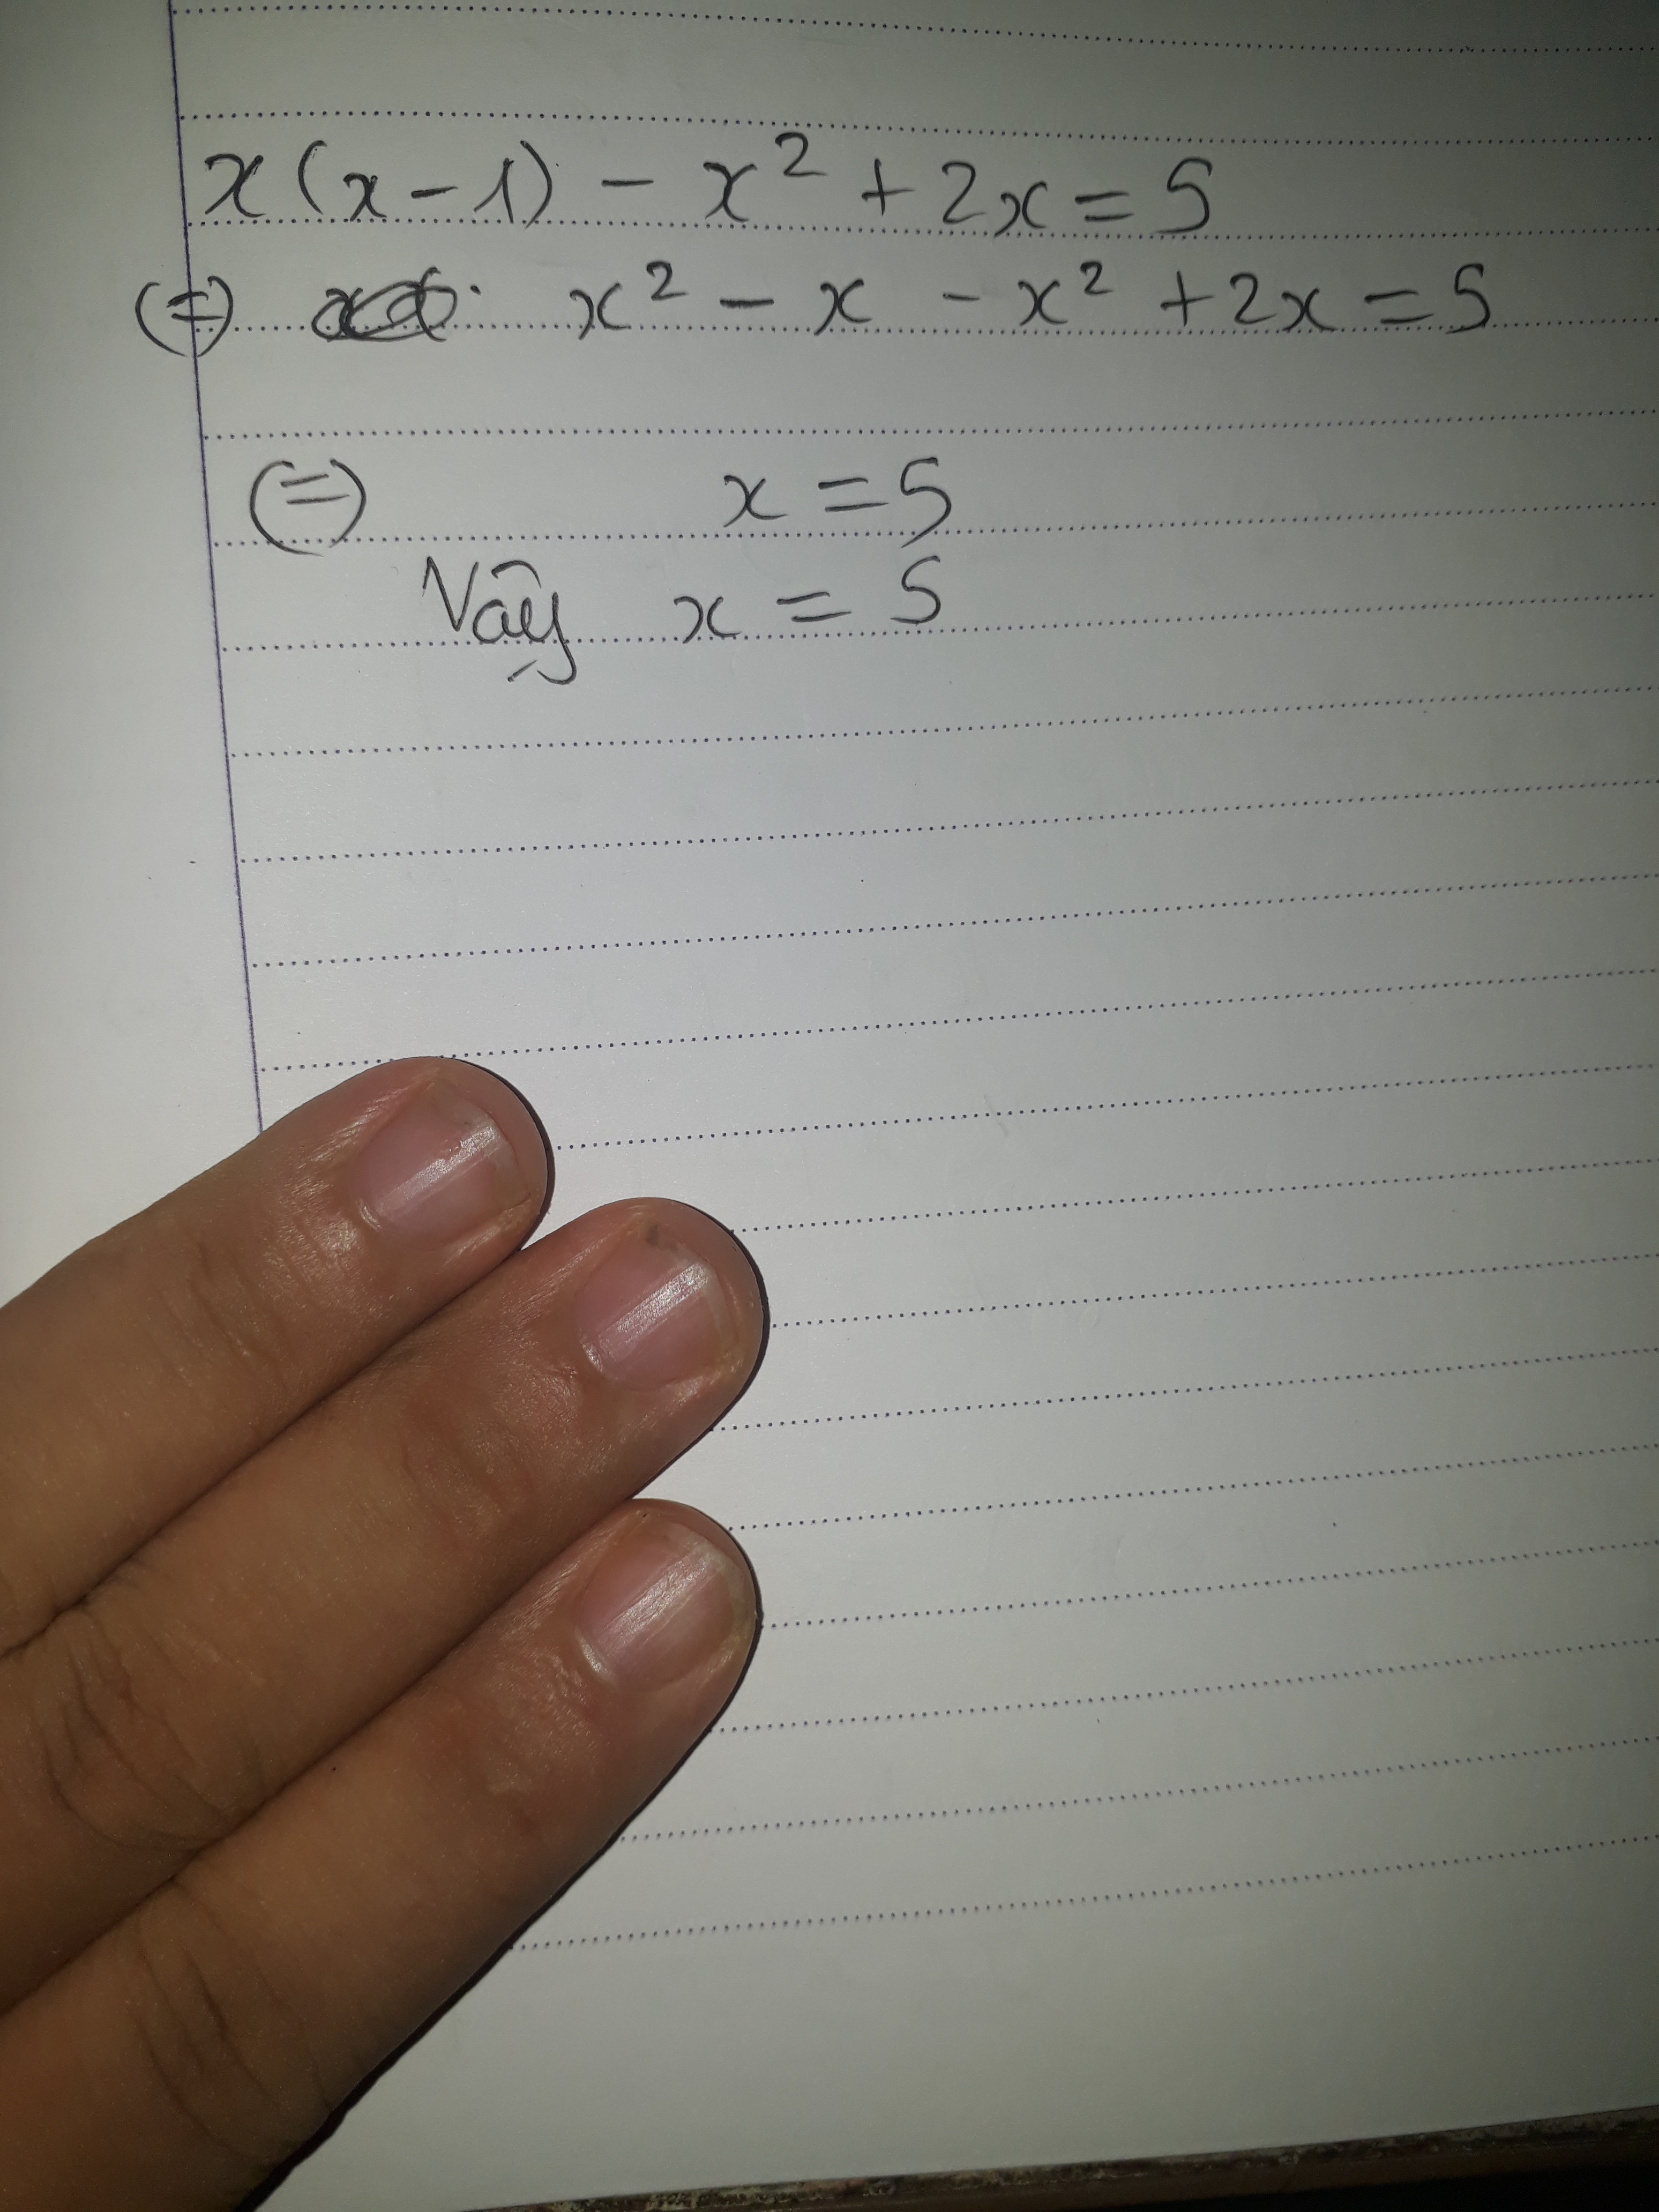 x(x-1) - x² + 2x = 5
(=) x² - x - x² + 2x = 5
(=) x = 5
Vậy x = 5